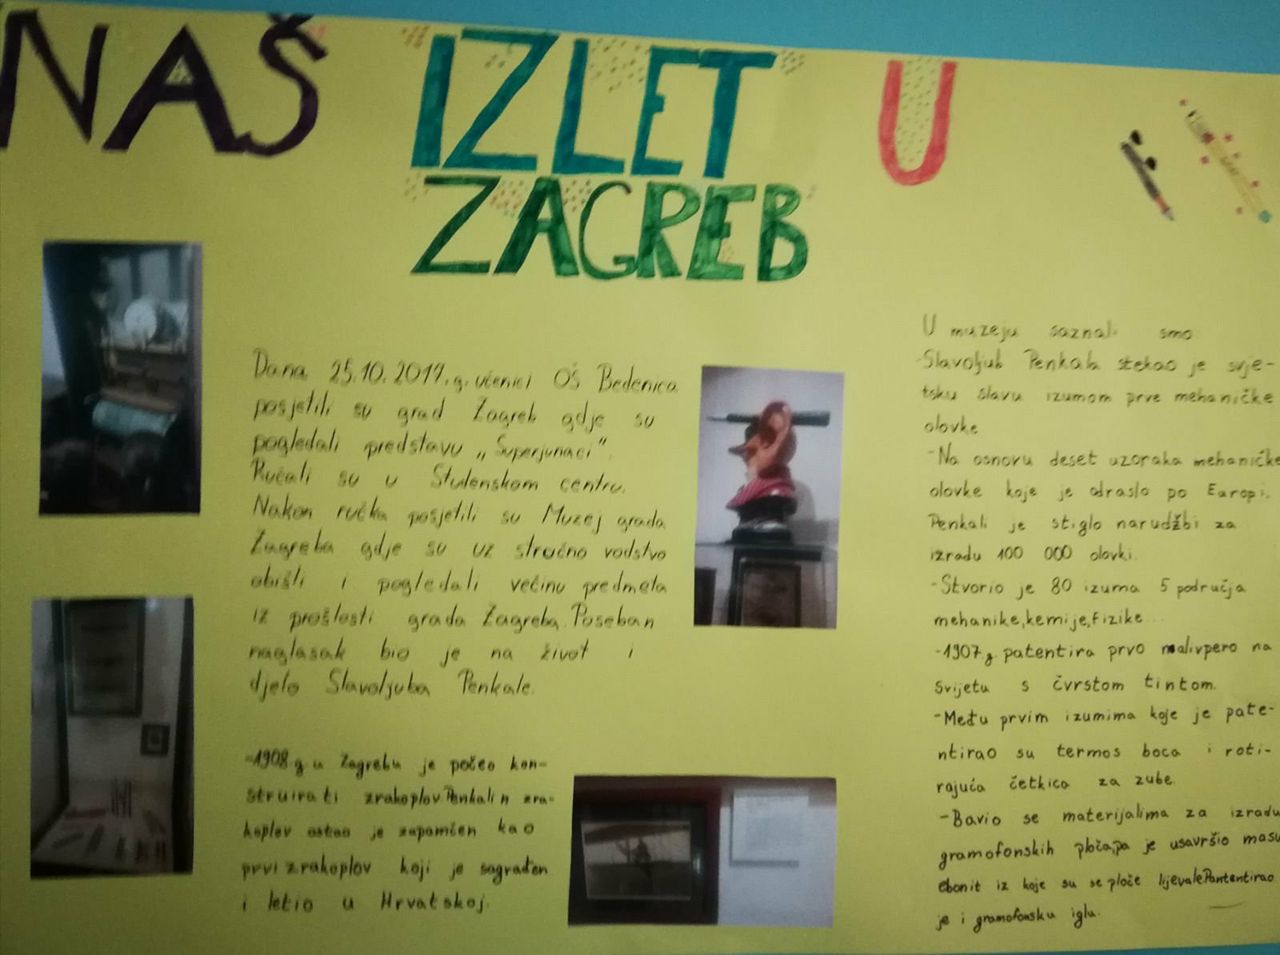 NAŠ IZLET U
ZAGREB
Dana 25.10.2017.g. učenici OŠ Bedenica
posjetili su grad Zagreb gdje su
pogledali predstavu „Superjunaci“.
Ručali su u Studenskom centru.
Nakon ručka posjetili su Muzej grada
Zagreba gdje su uz stručno vodstvo
obišli i pogledali većinu predmeta
iz prošlosti grada Zagreba. Poseban
naglasak bio je na život i
djelo Slavoljuba Penkale.
-1908.g u Zagrebu je počeo kon-
struirati zrakoplov. Penkalin zra-
koplov ostao je zapamćen kao
prvi zrakoplov koji je sagrađen
i letio u Hrvatskoj.
U muzeju saznali smo:
-Slavoljub Penkala stekao je svje-
tsku slavu izumom prve mehaničke
olovke
-Na osnovu deset uzoraka mehaničke
olovke koje je odraslo po Europi,
Penkali je stiglo narudžbi za
izradu 100 000 olovki.
-Stvorio je 80 izuma 5 područja
mehanike,kemije,fizike...
-1907.g. patentira prvo nalivpero na
svijetu s čvrstom tintom.
-Među prvim izumima koje je pate-
ntirao su termos boca i roti-
rajuća četkica za zube.
-Bavio se materijalima za izradu
gramofonskih ploča,pa je usavršio masu
ebonit iz koje su se ploče lijevale.Pantentirao
je i gramofonsku iglu.